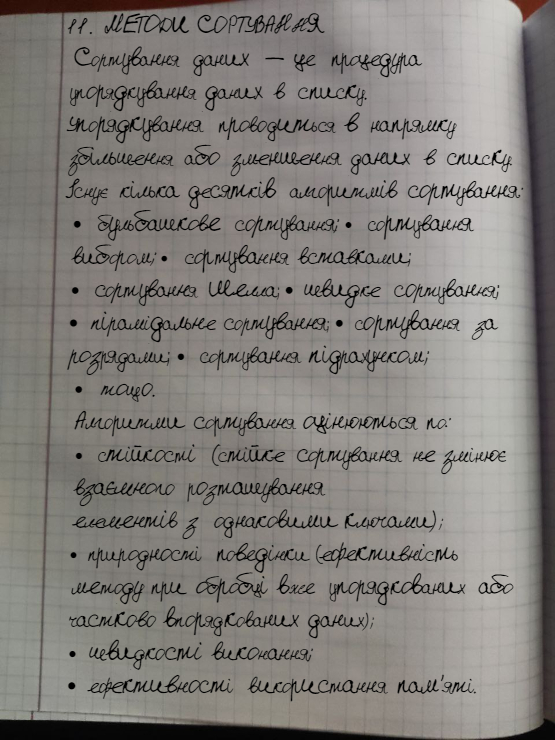 11. МЕТОДИ СОРТУВАННЯ
Сортування даних — це процедура
упорядкування даних в списку.
Упорядкування проводиться в напрямку
збільшення або зменшення даних в списку.
Існує кілька десятків алгоритмів сортування:
• бульбашкове сортування; • сортування
вибором; • сортування вставками;
• сортування Шелла; • швидке сортування;
• пірамідальне сортування; • сортування за
розрядами; • сортування підрахунком;
• тощо.
Алгоритми сортування оцінюються по:
• стійкості (стійке сортування не змінює
взаємного розташування
елементів з однаковими ключами);
• природності поведінки (ефективність
методу при обробці вже упорядкованих або
частково впорядкованих даних);
• швидкості виконання;
• ефективності використання пам'яті.